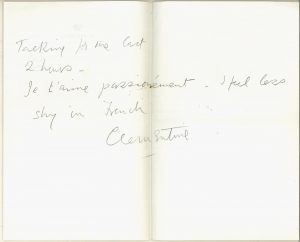 Talking for the last
2 hours -
Je t'aime passionément - I feel less
shy in French
Clementine